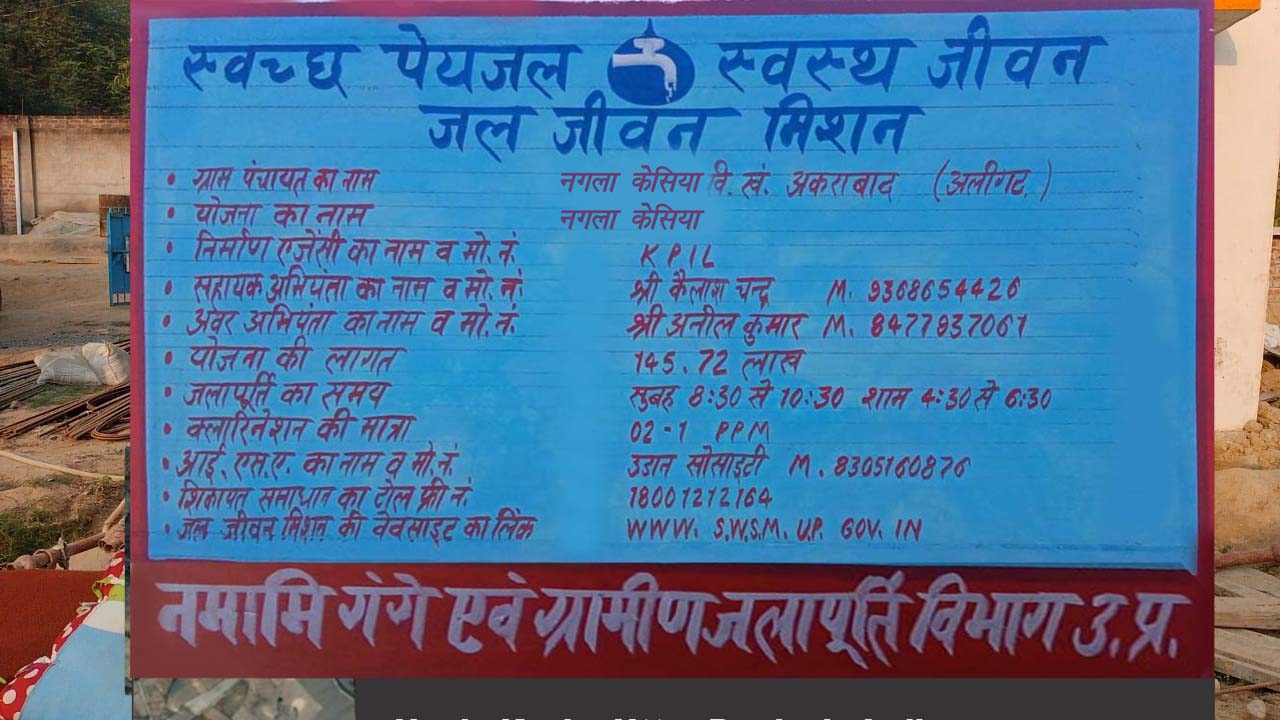 स्वच्छ पेयजल स्वस्थ जीवन
जल जीवन मिशन
• ग्राम पंचायत का नाम नगला केसिया वि. खं. अकराबाद (अलीगढ़.)
• योजना का नाम नगला केसिया
• निर्माण एजेंसी का नाम व मो. नं. KPIL
• सहायक अभियंता का नाम व मो. नं. श्री कैलाश चन्द्र M. 9368654426
• अवर अभियंता का नाम व मो. नं. श्री अनील कुमार M. 8477937061
• योजना की लागत 145.72 लाख
• जलापूर्ति का समय सुबह 8:30 से 10:30 शाम 4:30 से 6:30
• क्लारिनेशन की मात्रा 02-1 PPM
• आई. एस.ए. का नाम व मो. नं. उडान सोसाइटी M. 8305160876
• शिकायत समाधान का टोल फ्री नं. 18001212164
• जल जीवन मिशन की वेबसाइट का लिंक WWW. S.W.S.M. U.P. GOV. IN
नमामि गंगे एवं ग्रामीण जलापूर्ति विभाग उ.प्र.